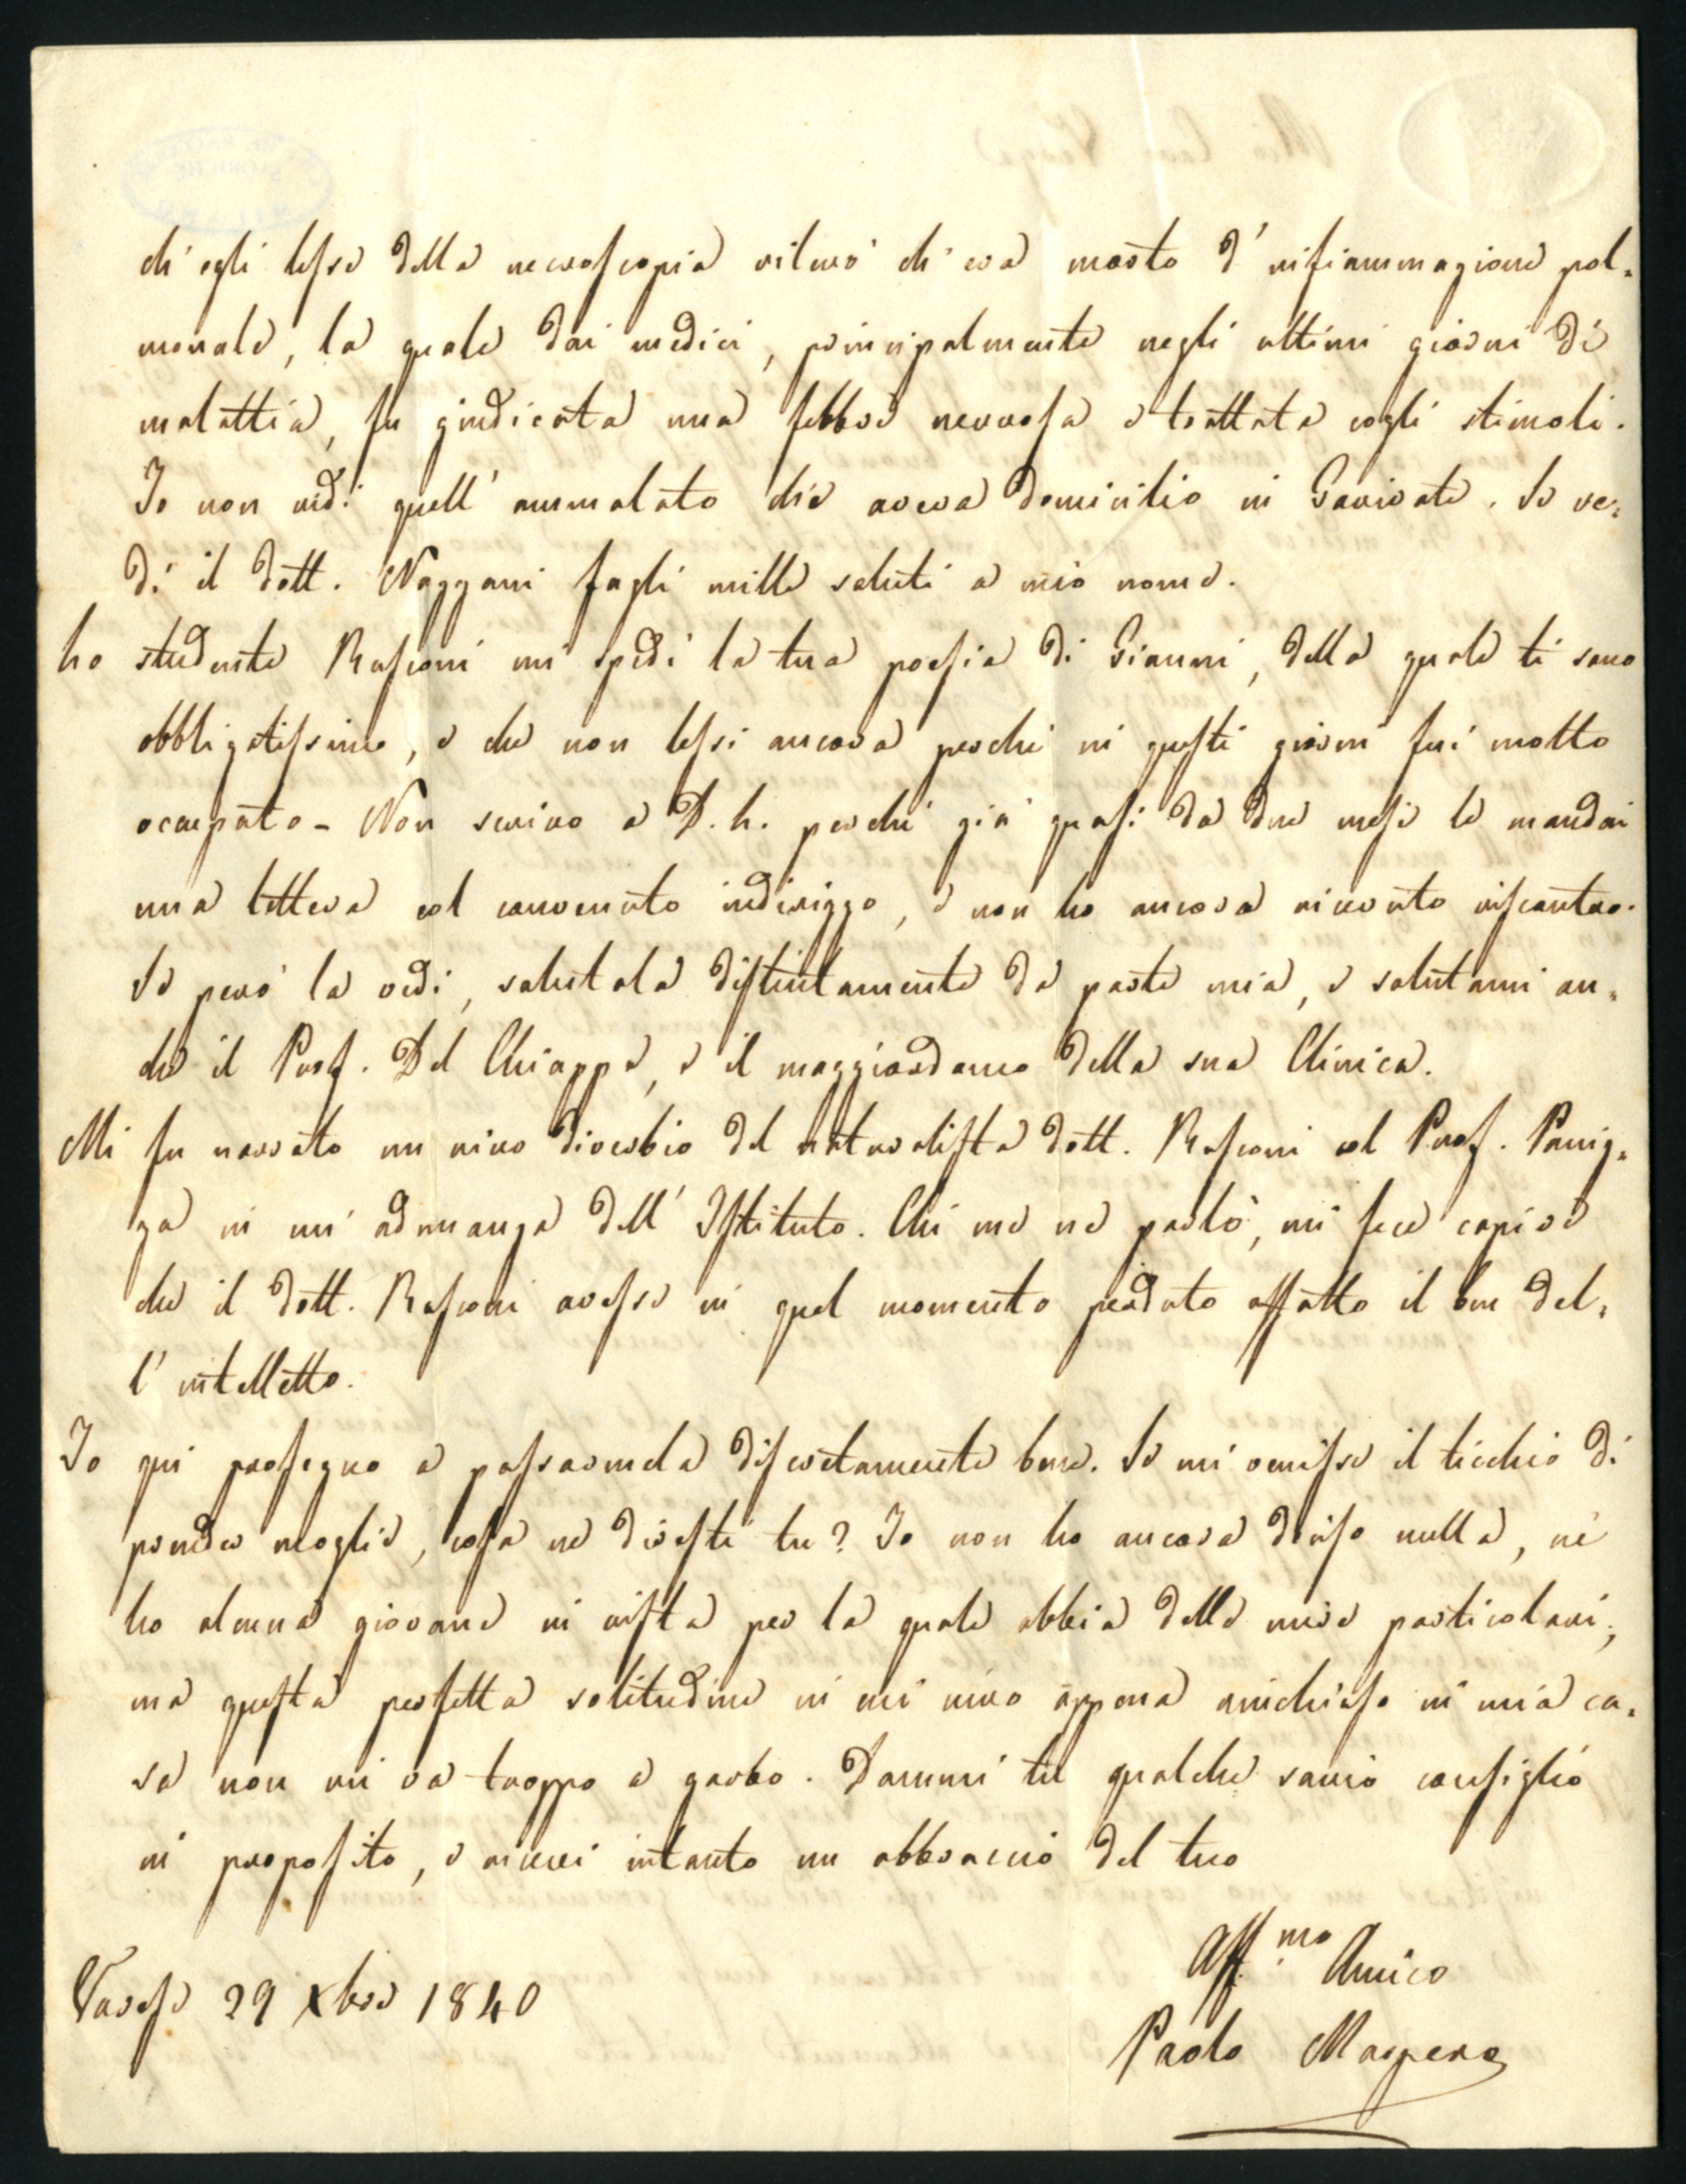 ch'egli lesse della necroscopia rilevò ch'era morto d'infiammazione pol-
monale, la quale dai medici, principalmente negli ultimi giorni di
malattia, fu giudicata una febbre nervosa e trattata cogli stimoli.
Io non vidi quell'ammalato che aveva domicilio in Gavirate. Se ve-
di il dott. Nazzani fagli mille saluti a mio nome.
Lo studente Rusconi mi spedì la tua poesia di Gianni, della quale ti sono
obbligatissimo, e che non lessi ancora perchè in questi giorni fui molto
occupato - Non scrivo a D. L. perchè già quasi da due mesi le mandai
una lettera col convenuto indirizzo, e non ho ancora ricevuto riscontro.
Se però la vedi, salutala distintamente da parte mia, e salutami an-
che il Prof. Del Chiappa, e il maggiordomo della sua Clinica.
Mi fu narrato un vivo diverbio del naturalista dott. Rusconi col Prof. Paniz-
za in un'adunanza dell'Istituto. Chi me ne parlò, mi fece capire
che il dott. Rusconi avesse in quel momento perduto affatto il ben del-
l'intelletto.
Io qui proseguo a passarmela discretamente bene. Se mi venisse il ticchio di
prender moglie, cosa ne diresti tu? Io non ho ancora deciso nulla, nè
ho alcuna giovane in vista per la quale abbia delle mire particolari;
ma questa perfetta solitudine in cui vivo appena rinchiuso in mia ca-
sa non mi va troppo a garbo. Dammi tu qualche savio consiglio
in proposito, e ricevi intanto un abbraccio del tuo
Aff.mo Amico
Varese 29 Xbre 1840
Paolo Maspero